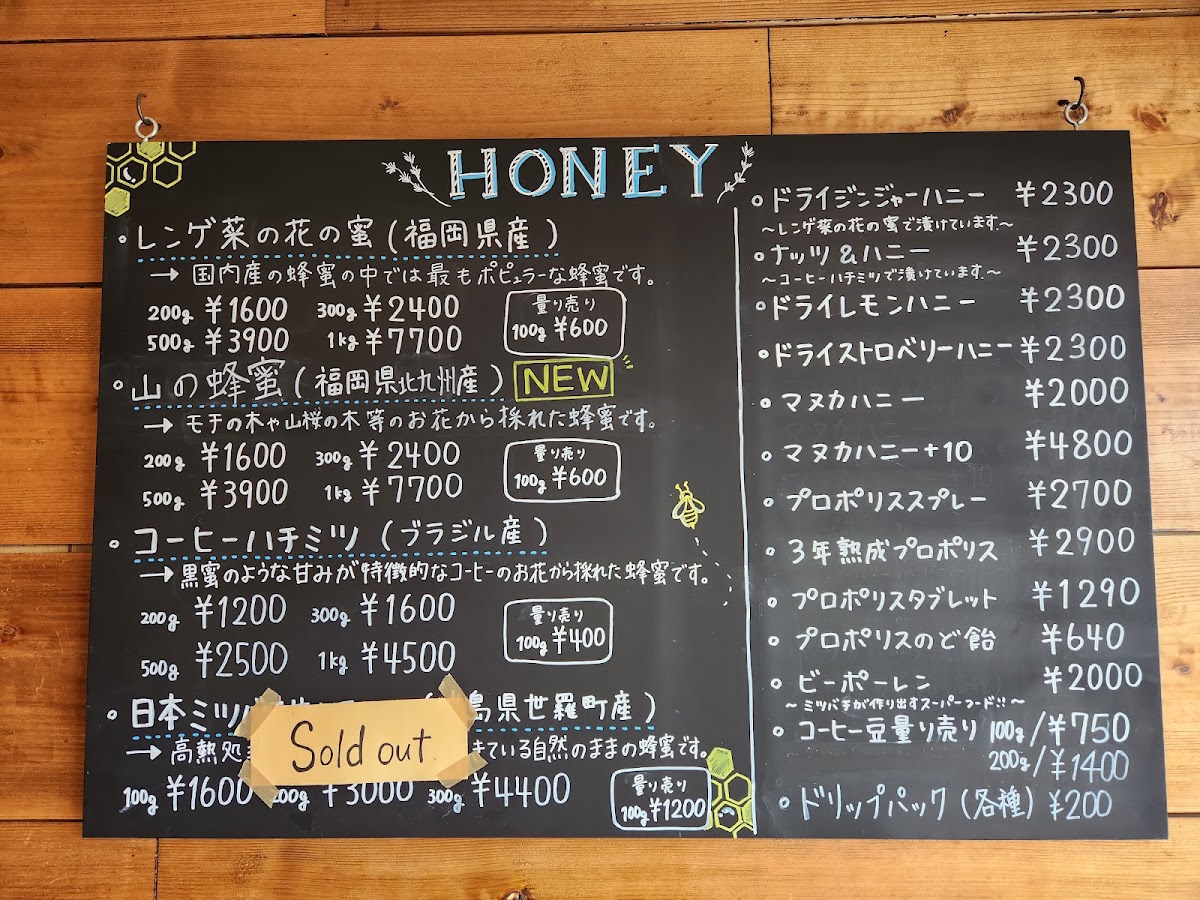 HONEY
・レンゲ菜の花の蜜(福岡県産)
→ 国内産の蜂蜜の中では最もポピュラーな蜂蜜です。
200g ¥1600 300g ¥2400
500g ¥3900 1kg ¥7700
量り売り
100g ¥600
・山の蜂蜜(福岡県北九州産) NEW
→ モチの木や山桜の木等のお花から採れた蜂蜜です。
200g ¥1600 300g ¥2400
500g ¥3900 1kg ¥7700
量り売り
100g ¥600
・コーヒーハチミツ(ブラジル産)
→ 黒蜜のような甘みが特徴的なコーヒーのお花から採れた蜂蜜です。
200g ¥1200 300g ¥1600
500g ¥2500 1kg ¥4500
量り売り
100g ¥400
・日本ミツバ 島県世羅町産)
Sold out
→ 高熱処 きている自然のままの蜂蜜です。
100g ¥1600 200g ¥3000 300g ¥4400
量り売り
100g ¥1200
・ドライジンジャーハニー ¥2300
〜レンゲ菜の花の蜜で漬けています。〜
・ナッツ&ハニー ¥2300
〜コーヒーハチミツで漬けています。〜
・ドライレモンハニー ¥2300
・ドライストロベリーハニー ¥2300
・マヌカハニー ¥2000
・マヌカハニー+10 ¥4800
・プロポリススプレー ¥2700
・3年熟成プロポリス ¥2900
・プロポリスタブレット ¥1290
・プロポリスのど飴 ¥640
・ビーポーレン ¥2000
〜ミツバチが作り出すスーパーフード!!〜
・コーヒー豆量り売り 100g/¥750
200g/¥1400
・ドリップパック(各種) ¥200